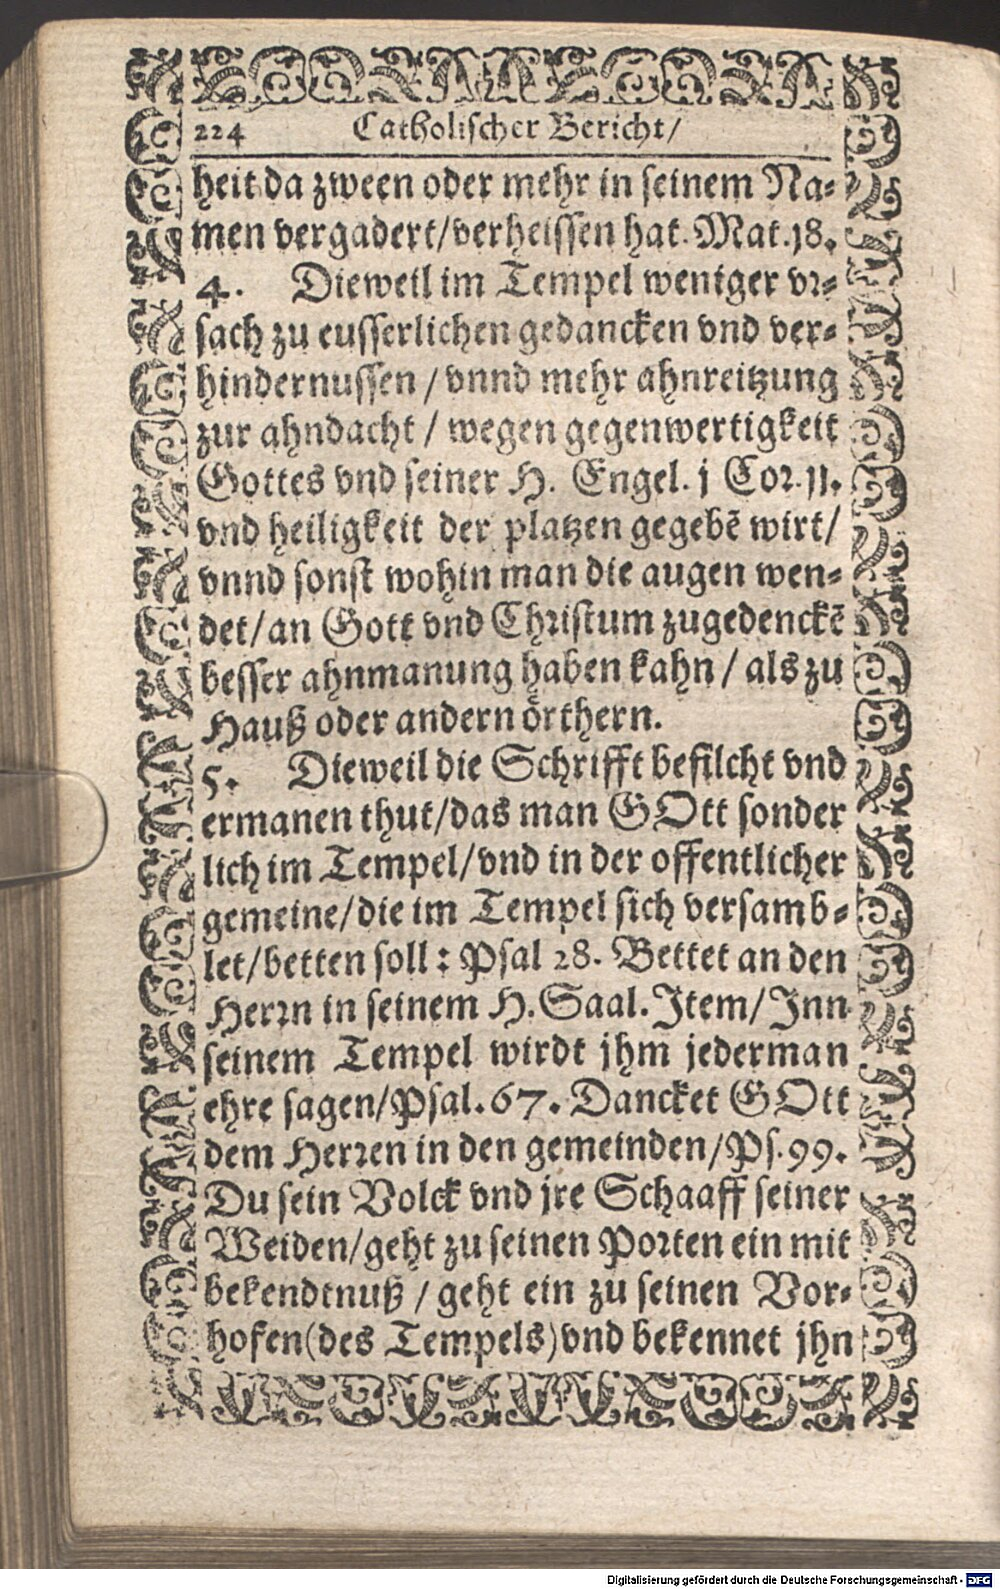 224 Catholischer Bericht/
heit da zween oder mehr in seinem Na-
men vergadert/verheissen hat. Mat. j8.
4. Dieweil im Tempel weniger vr-
sach zu eusserlichen gedancken vnd ver-
hindernussen / vnnd mehr ahnreitzung
zur ahndacht / wegen gegenwertigkeit
Gottes vnd seiner H. Engel. j Cor. jj.
vnd heiligkeit der platzen gegebē wirt/
vnnd sonst wohin man die augen wen-
det/an Gott vnd Christum zugedenckē
besser ahnmanung haben kahn / als zu
Hauß oder andern örthern.
5. Dieweil die Schrifft befilcht vnd
ermanen thut/das man GOtt sonder
lich im Tempel/vnd in der offentlicher
gemeine/die im Tempel sich versamb-
let/betten soll : Psal 28. Bettet an den
Herrn in seinem H. Saal. Jtem/Jnn
seinem Tempel wirdt jhm jederman
ehre sagen/Psal. 67. Dancket GOtt
dem Herren in den gemeinden/Ps. 99.
Du sein Volck vnd jre Schaaff seiner
Weiden/geht zu seinen Porten ein mit
bekendtnuß / geht ein zu seinen Vor-
hofen(des Tempels)vnd bekennet jhn
Digitalisierung gefördert durch die Deutsche Forschungsgemeinschaft - DFG